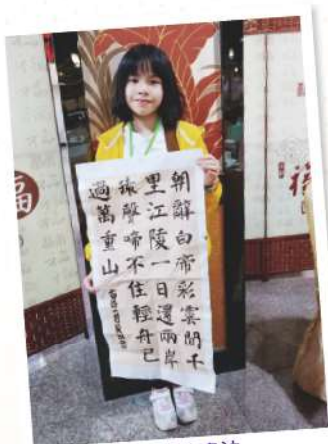 朝辭白帝彩雲間千
里江陵一日還兩岸
猿聲啼不住輕舟已
過萬重山
福
福